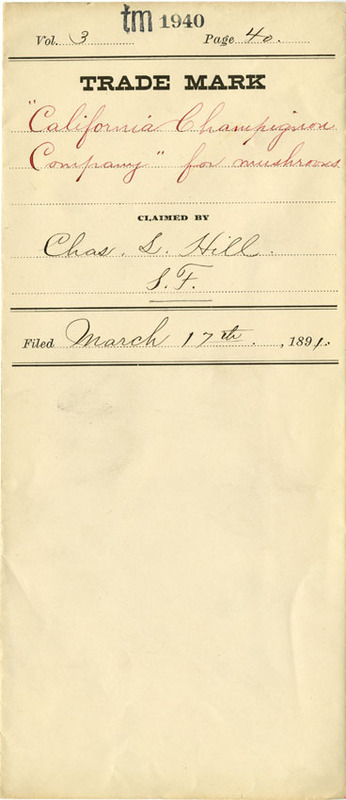 tm 1940
Vol. 3 Page 40.
TRADE MARK
"California Champignon
Company" for mushrooms
CLAIMED BY
Chas. L. Hill.
S.F.
Filed March 17th, 1891.